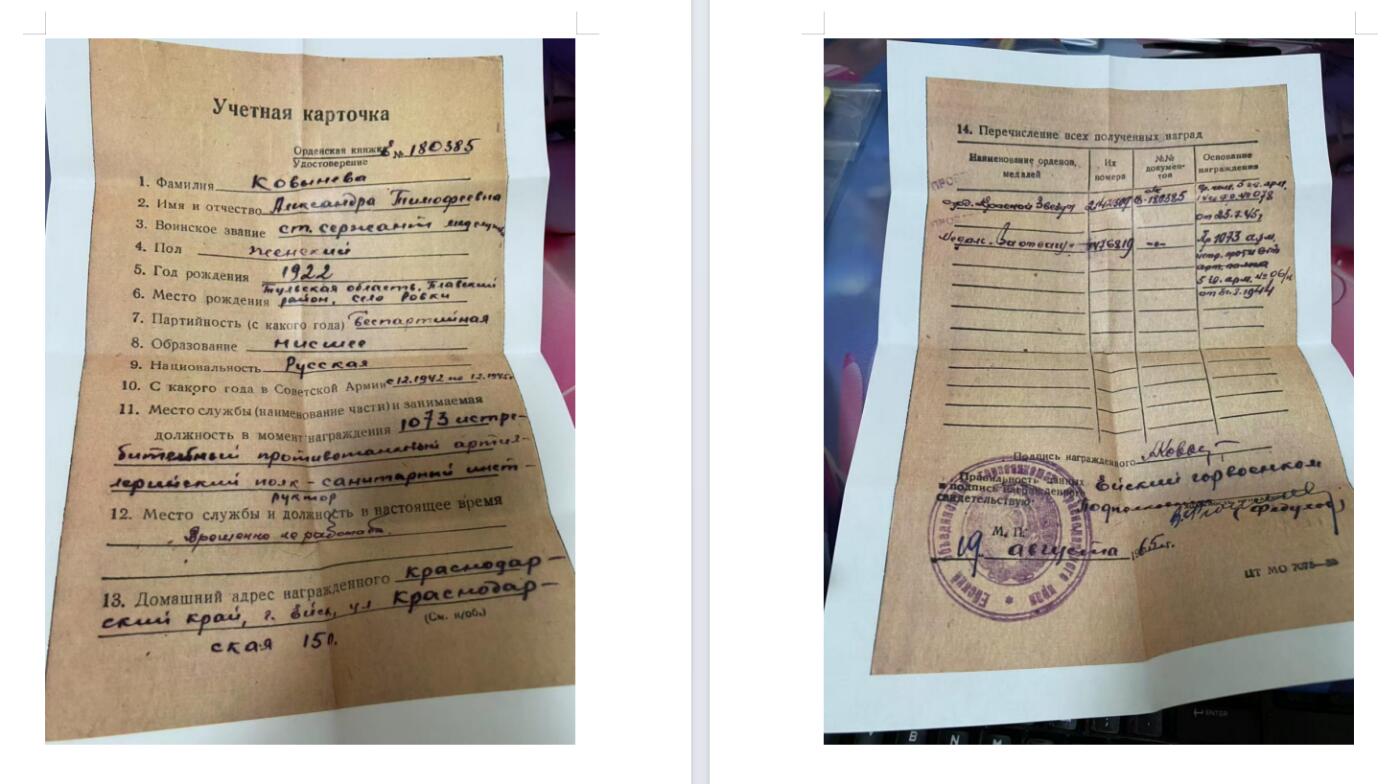 Учетная карточка
Орденская книжка № 180385
Удостоверение
1. Фамилия Ковынева
2. Имя и отчество Александра Тимофеевна
3. Воинское звание ст. сержант
4. Пол женский
5. Год рождения 1922
Тульская область, Плавский
6. Место рождения район, село
7. Партийность (с какого года) беспартийная
8. Образование низшее
9. Национальность Русская
10. С какого года в Советской Армии с 12.1942 по 12.1945г
11. Место службы (наименование части) и занимаемая
должность в момент награждения 1073 истре-
бительный противотанковый артил-
лерийский полк - санитарный инст-
руктор
12. Место службы и должность в настоящее время
Временно не работает
13. Домашний адрес награжденного Краснодар-
ский край, г. Ейск, ул Краснодар-
(См. н/об.)
ская 150.
14. Перечисление всех полученных наград
Наименование орденов, медалей
Их номера
№№ документов
Основание награждения
орд. Красной Звезды
180385
Медаль "За отвагу"
Пр 1073 арт.
5 гв. арм.
Подпись награжденного
Правильность данных
и подпись награжденного
свидетельствую:
Ейский горвоенком
(Федухов)
М. П.
19 августа 1965г.
ENTER
B
N
M